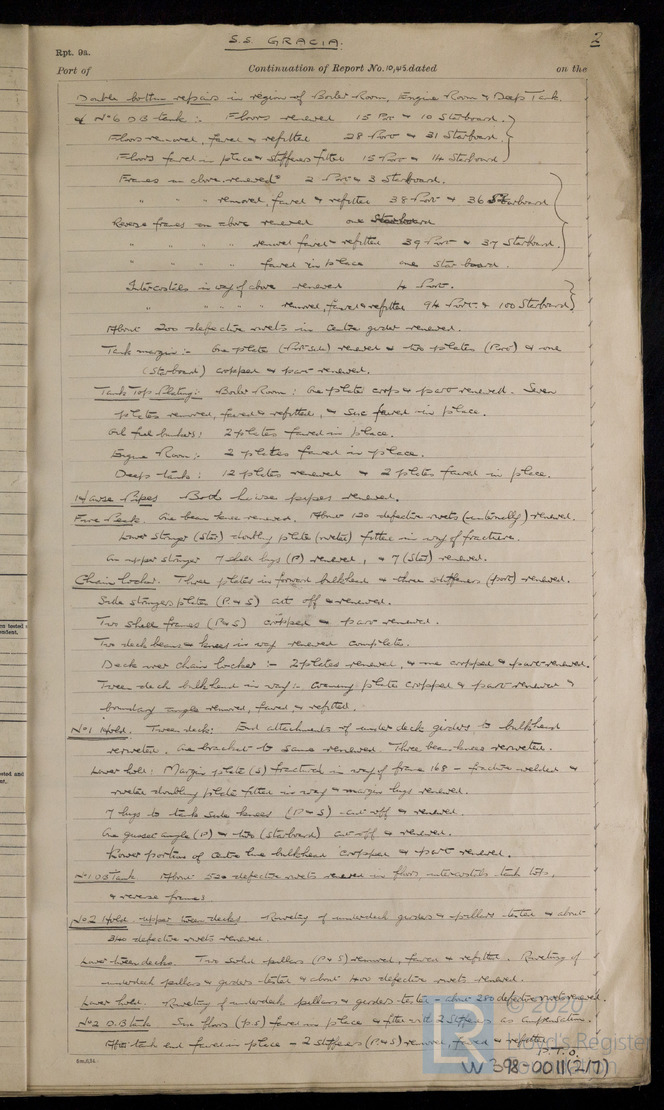 S.S. GRACIA.
2
Rpt. 9a.
Port of Continuation of Report No. 10,45 dated on the
Double bottom repairs in region of Boiler Room, Engine Room & Deep Tank.
& No 6 DB tank: Floors renewed 15 Port & 10 Starboard.
Floors removed, faired & refitted 28 Port & 31 Starboard.
Floors faired in place & stiffeners fitted 15 Port & 14 Starboard
Frames in above renewed 2 Port & 3 Starboard.
" " " removed, faired & refitted 38 Port & 36 Starboard
Reverse frames on above renewed one Starboard
" " " " removed faired & refitted 39 Port & 37 Starboard.
" " " " faired in place one starboard.
Intercostals in way of above renewed 4 Port.
" " " " removed, faired & refitted 94 Port & 100 Starboard
About 200 defective rivets in centre girder renewed.
Tank margin:- One plate (Port side) renewed & two plates (Port) & one
(Starboard) cropped & part renewed.
Tank Top Plating:- Boiler Room: One plate cropped & part renewed. Seven
plates removed, faired & refitted, & six faired in place.
Oil fuel bunkers: 2 plates faired in place.
Engine Room: 2 plates faired in place.
Deep tank: 12 plates renewed & 2 plates faired in place.
Hawse Pipes Both hawse pipes renewed.
Fore Peak. One beam knee renewed. About 120 defective rivets (internally) renewed.
Lower stringer (Star) doubling plate (riveted) fitted in way of fracture.
On upper stringer 7 shell lugs (P) renewed, & 7 (Star) renewed.
Chain locker. Three plates in forward bulkhead & three stiffeners (port) renewed.
Side stringers plates (P & S) cut off & renewed.
Two shell frames (P & S) cropped & part renewed.
Two deck beams & knees in way renewed complete.
Deck over chain locker:- 2 plates renewed, & one cropped & part renewed.
Tween deck bulkhead in way:- plate cropped & part renewed &
boundary angle removed, faired & refitted.
No 1 Hold. Tween deck: End attachments of under deck girders to bulkhead
reriveted. One bracket to same renewed. Three beam knees reriveted.
Lower hold: Margin plate (S) fractured in way of frame 168 - fracture welded &
riveted doubling plate fitted in way & margin lugs renewed.
7 lugs to tank side knees (P & S) cut off & renewed.
One gusset angle (P) & two (Starboard) cut off & renewed.
Lower portion of centre line bulkhead cropped & part renewed.
No 1 DB Tank About 520 defective rivets renewed in floors, intercostals tank top,
& reverse frames
No 2 Hold. upper tween decks. Riveting of underdeck girders & pillars tested & about
340 defective rivets renewed.
Lower tween decks. Two solid pillars (P & S) removed, faired & refitted. Riveting of
underdeck pillars & girders tested & about 400 defective rivets renewed.
Lower hold. Riveting of underdeck pillars & girders tested & about 280 defective rivets renewed.
No 2 D.B tank Six floors (P.S) faired in place & fitted with 2 stiffeners as compensation.
Aft tank end faired in place - 2 stiffeners (P & S) removed, faired & refitted
P.T.O.
© 2020
Lloyd's Register
LR
W 398-0011(2/7)